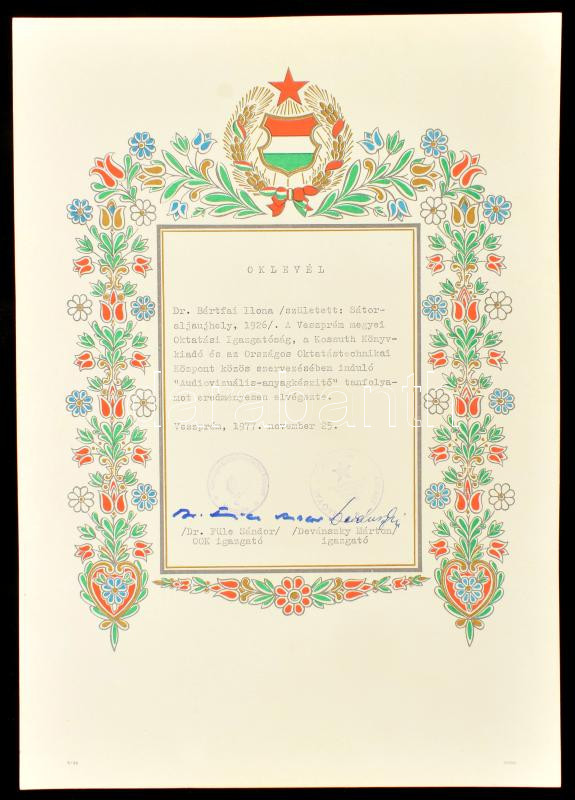 OKLEVÉL
Dr. Bártfai Ilona /született: Sátor-
aljaujhely, 1926/. A Veszprém megyei
Oktatási Igazgatóság, a Kossuth Könyv-
kiadó és az Országos Oktatástechnikai
Központ közös szervezésében induló
"Audiovizuális-anyagkészítő" tanfolya-
mot eredményesen elvégezte.
Veszprém, 1977. november 25.
/Dr. Füle Sándor/ /Devánszky Márton/
OOK igazgató igazgató
darabanth